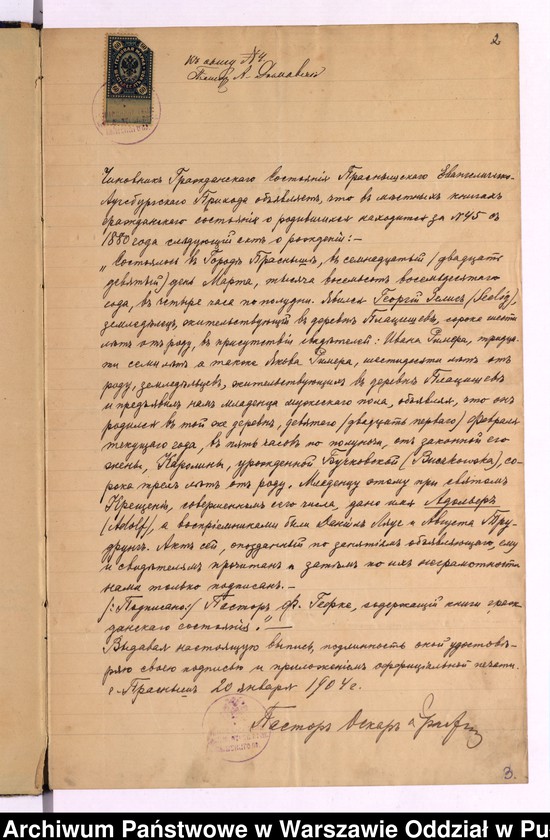 2
Къ акту № 4
Пасторъ А.
Чиновникъ Гражданскаго Состоянія Праснышскаго Евангелическо-
Аугсбургскаго Прихода объявляетъ, что въ мѣстныхъ книгахъ
гражданскаго состоянія о родившихся находится за № 45 съ
1880 года слѣдующій актъ о рожденіи: —
"Состоялось въ Городѣ Праснышѣ, въ семнадцатый /двадцать
девятый/ день Марта, тысяча восемьсотъ восемьдесятаго
года, въ четыре часа по полудни. Явился Георгій
земледѣлецъ, жительствующій въ деревнѣ сорока шести
лѣтъ отъ роду, въ присутствіи свидѣтелей: Ивана Ример­а, тридца-
ти семи лѣтъ а также Якова Римера, шестидесяти лѣтъ отъ
роду, земледѣльцевъ, жительствующихъ въ деревнѣ
и предъявилъ намъ младенца мужескаго пола, объявляя, что онъ
родился въ той же деревнѣ, девятаго /двадцать перваго/ Февраля
текущаго года, въ пять часовъ по полуночи, отъ законной его
жены, Каролины, урожденной Бучковской (Buczkowska), со-
рока трехъ лѣтъ отъ роду. Младенцу этому при святомъ
Крещеніи, совершенномъ сего числа, дано имя Адольфъ
(Adolf), а воспріемниками были и Августа
Актъ сей, опозданный по занятіямъ объявляющаго, ему
и свидѣтелямъ прочитанъ а затѣмъ по ихъ неграмотности
нами только подписанъ. —
/:Подписано:/ Пасторъ Ф. Герке, содержащій книги граж-
данскаго состоянія." —
Выдавая настоящую выпись, подлинность оной удостовѣ-
ряю своею подписью и приложеніемъ оффиціальной печати.
г. Праснышъ 20 января 1904 г.
Пасторъ Оскаръ
3.
Archiwum Państwowe w Warszawie Oddział w Pu